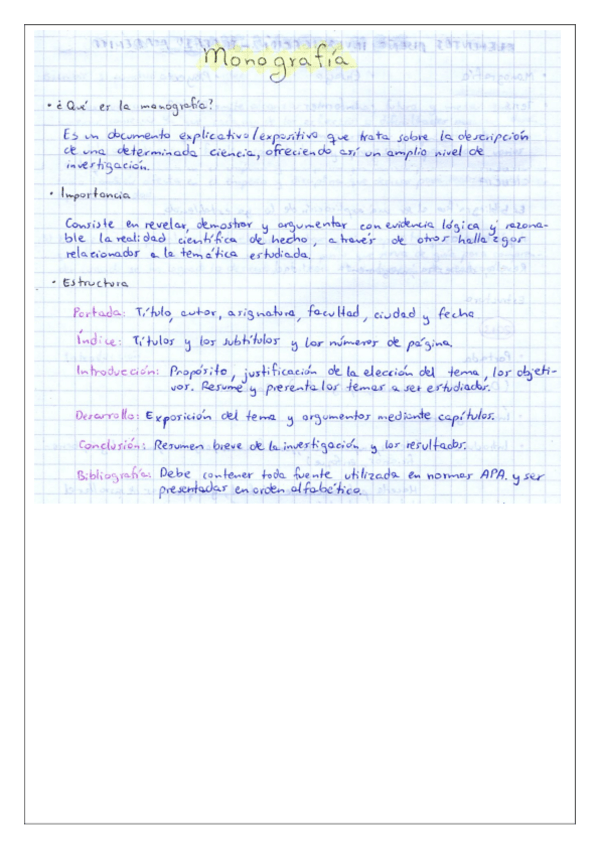 Monografía
• ¿Qué es la monografía?
Es un documento explicativo/expositivo que trata sobre la descripción
de una determinada ciencia, ofreciendo así un amplio nivel de
investigación.
• Importancia
Consiste en revelar, demostrar y argumentar con evidencia lógica y razona-
ble la realidad científica de hecho, a través de otros hallazgos
relacionados a la temática estudiada.
• Estructura
Portada: Título, autor, asignatura, facultad, ciudad y fecha
Índice: Títulos y los subtítulos y los números de página.
Introducción: Propósito, justificación de la elección del tema, los objeti-
vos. Resume y presenta los temas a ser estudiados.
Desarrollo: Exposición del tema y argumentos mediante capítulos.
Conclusión: Resumen breve de la investigación y los resultados.
Bibliografía: Debe contener toda fuente utilizada en normas APA. y ser
presentadas en orden alfabético.